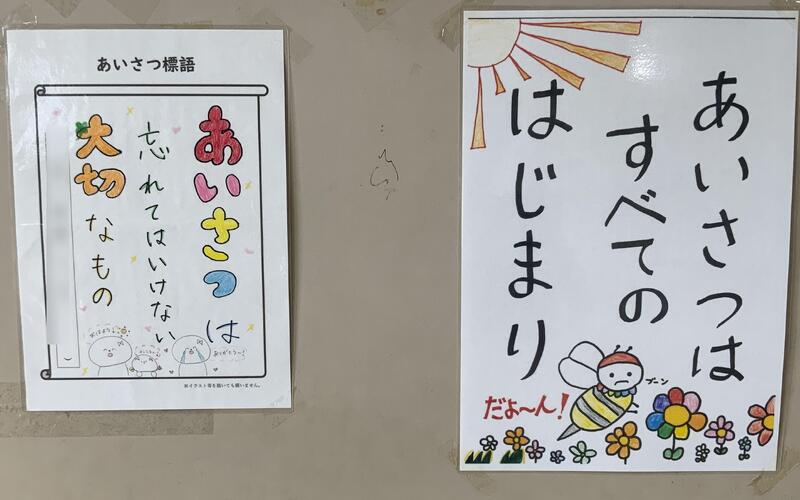 あいさつ標語
あいさつは
忘れてはいけない
大切なもの
おはよう
ありがとう〜!
※イラスト等を描いても構いません。
あいさつは
すべての
はじまり
だよ〜ん!
ブーン